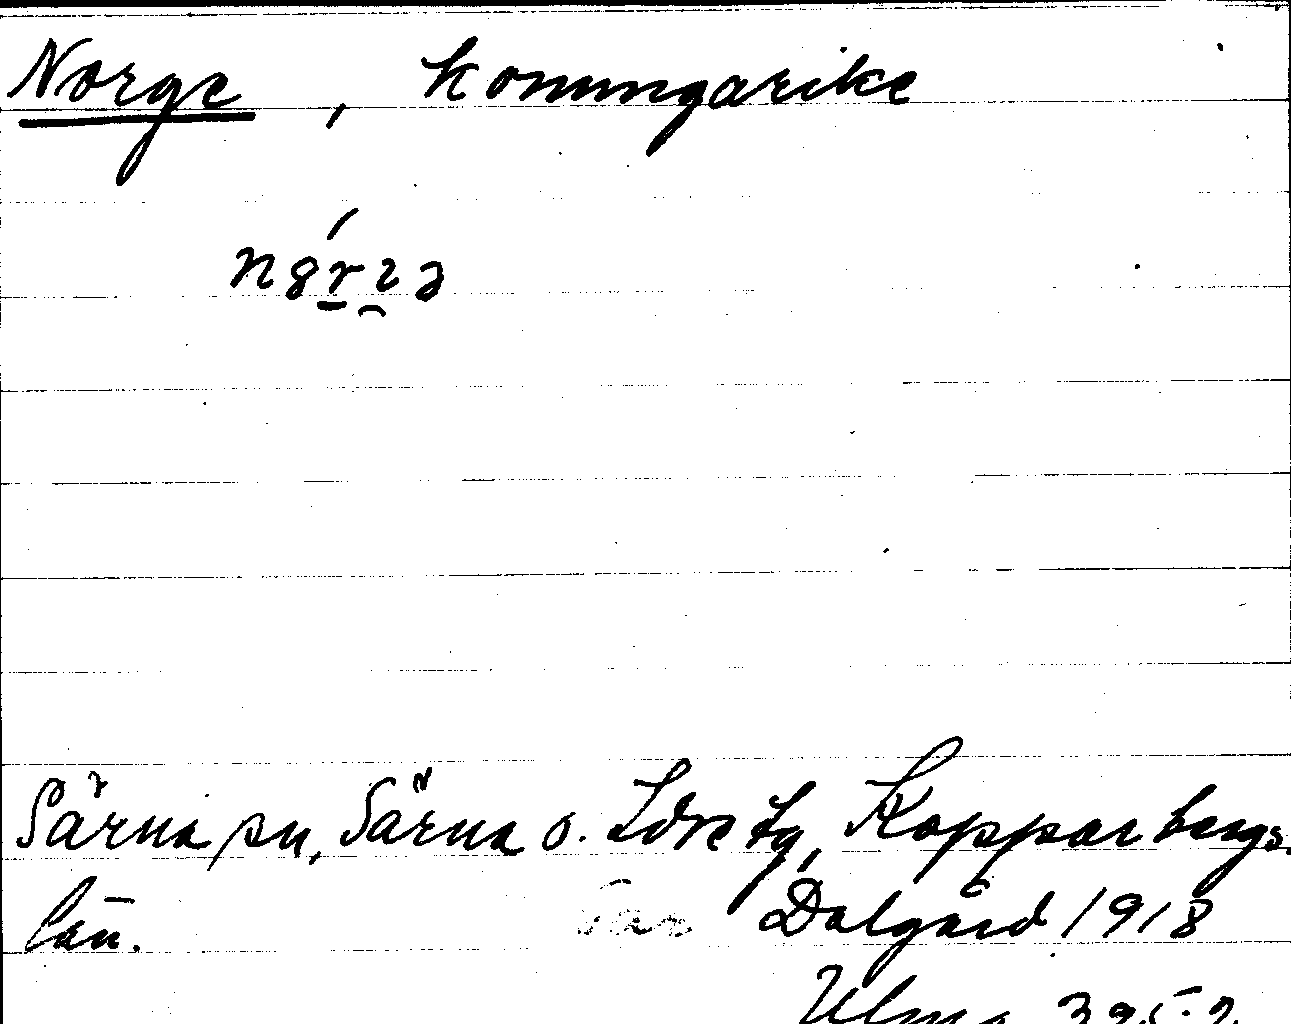 Norge, konungarike
Särna sn, Särna o. Idre tg, Kopparbergs
län. Dalgård 1918
Ulma 395:2